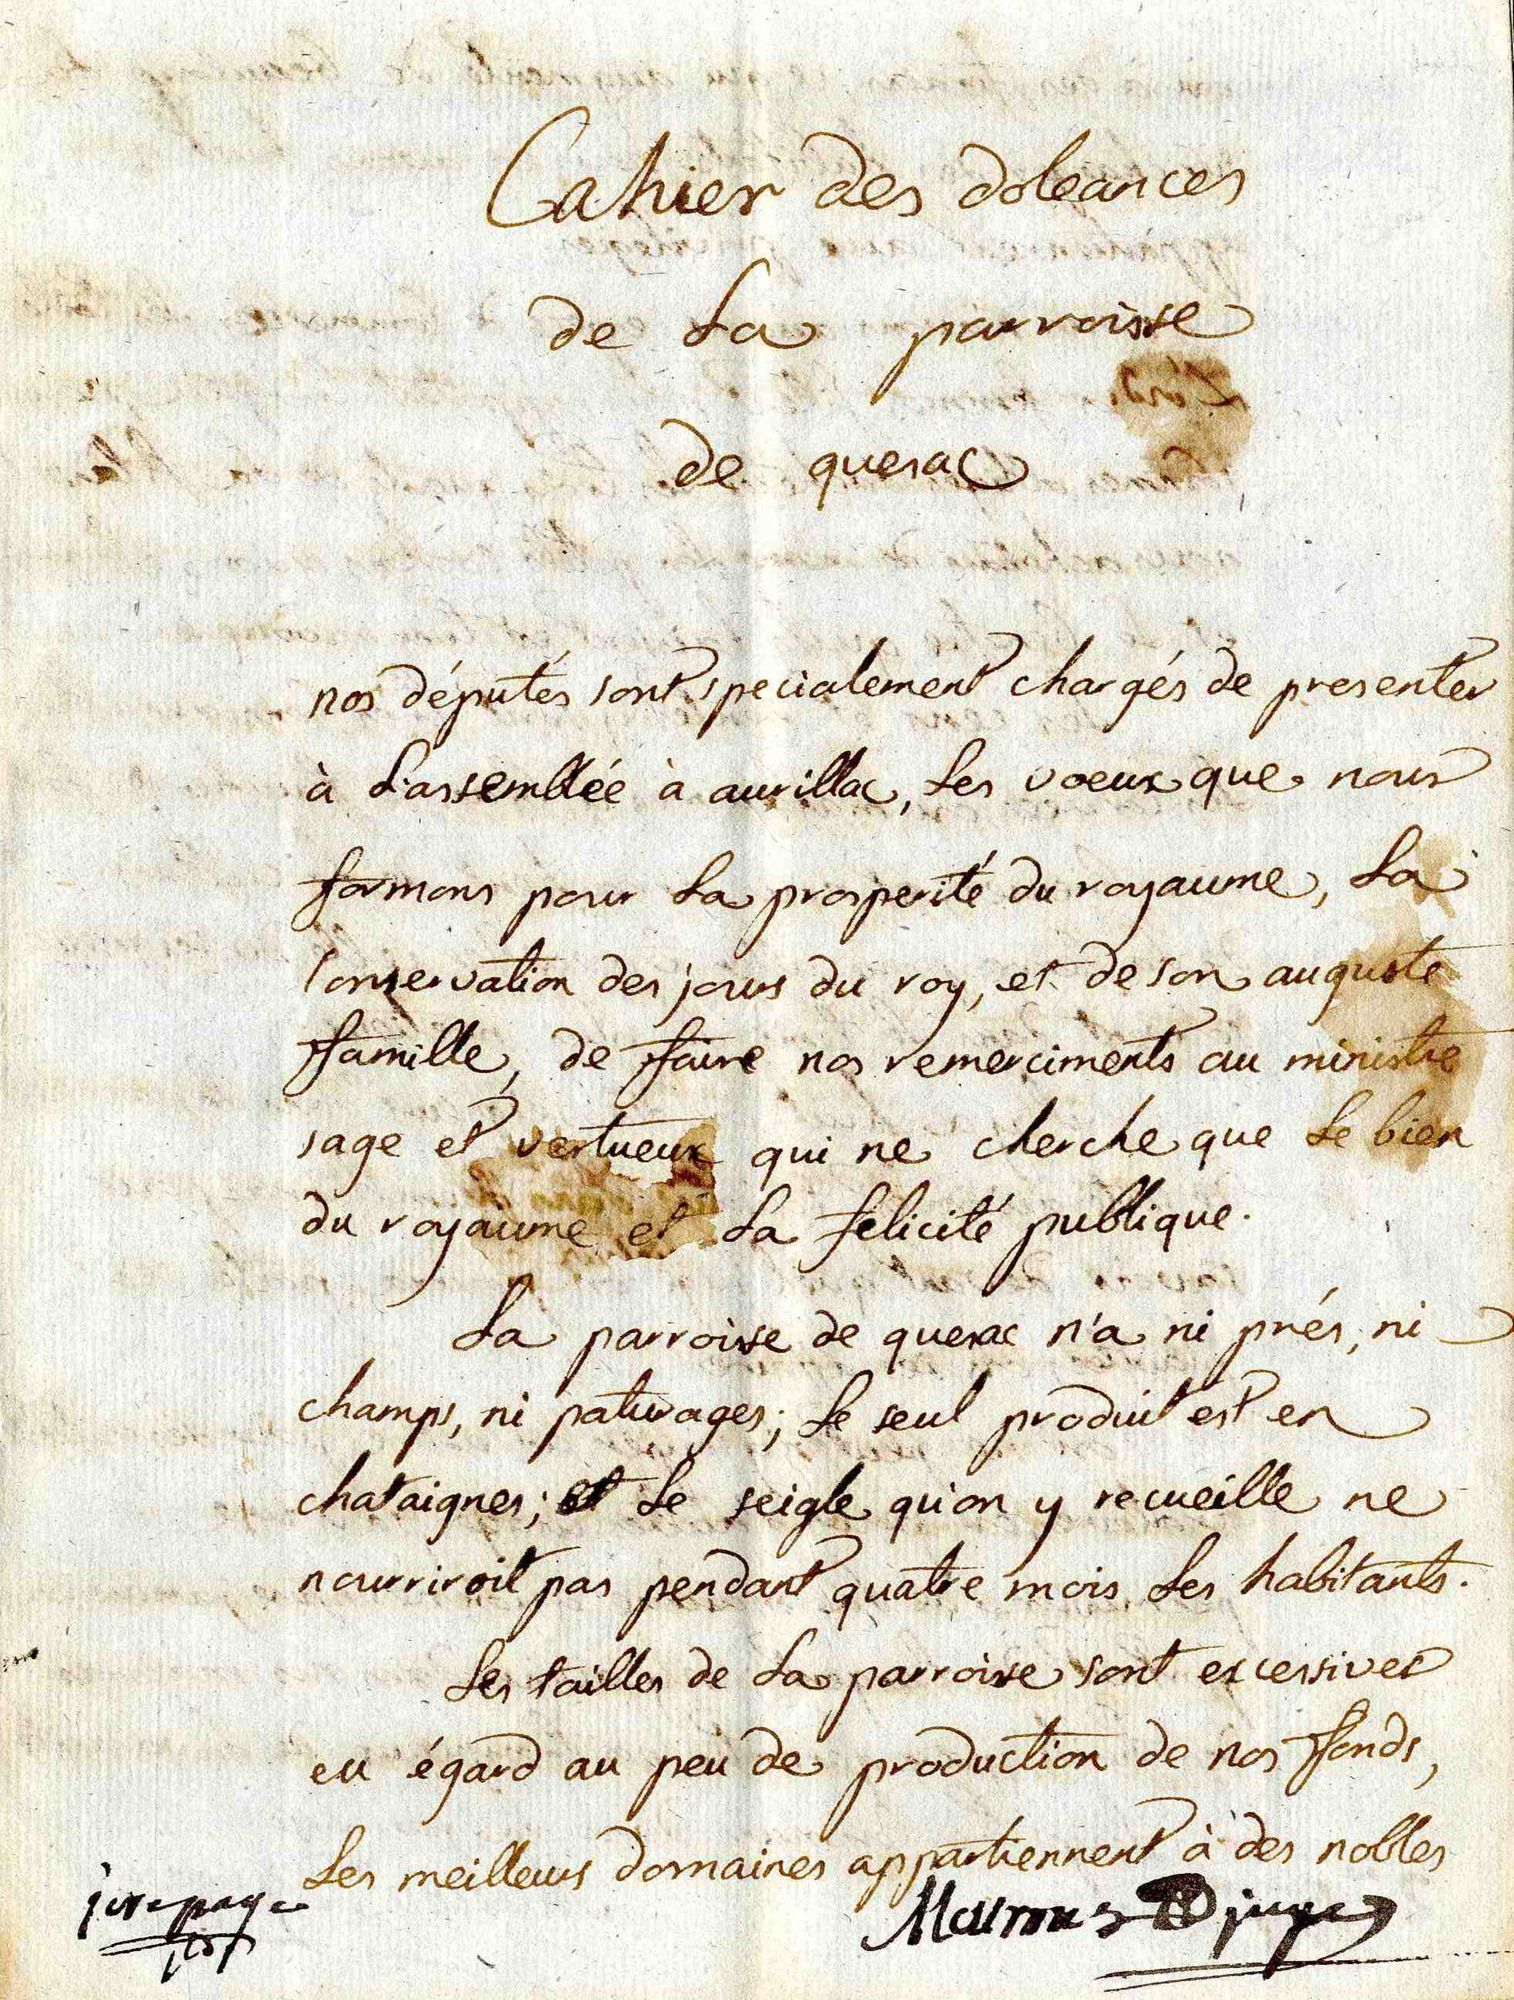 Cahier des doleances
de La parroisse
de quesac
nos députés sont specialement chargés de presenter
à L'assemblée à aurillac, Les voeux que nous
formons pour La prosperité du royaume, La
conservation des jours du roy, et de son auguste
famille, de faire nos remerciments au ministre
sage et vertueux qui ne cherche que Le bien
du royaume et La felicité publique.
La parroisse de quesac n'a ni prés, ni
champs, ni paturages; Le seul produit est en
chataignes; et Le seigle qu'on y recueille ne
nourriroit pas pendant quatre mois Les habitants.
Les tailles de La parroisse sont excessives
eu égard au peu de production de nos fonds,
Les meilleurs domaines appartiennent à des nobles
1ere page
juge